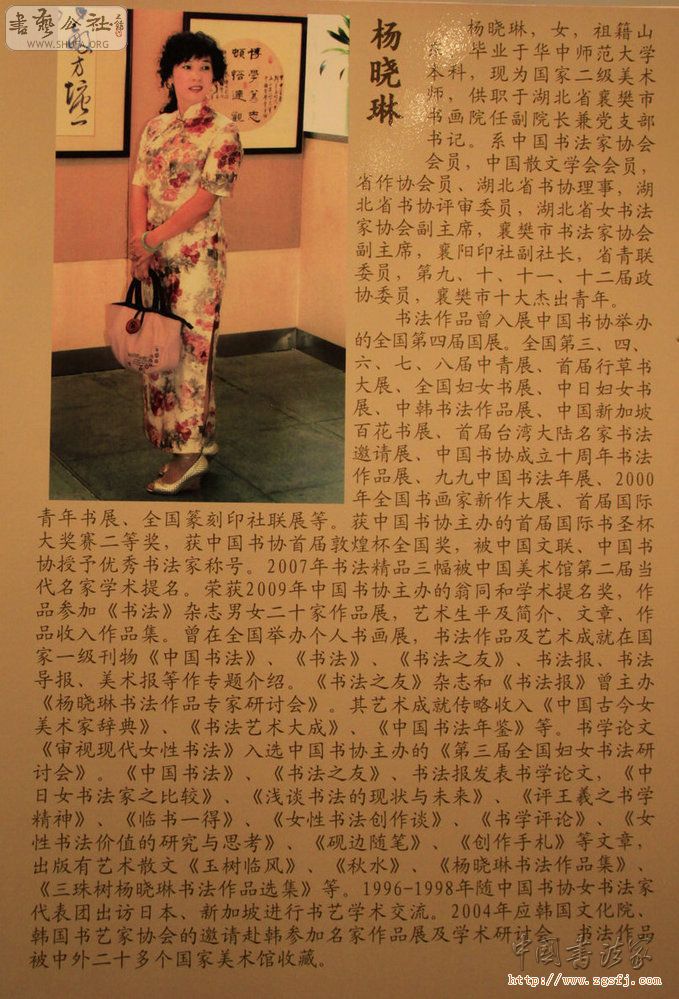 書藝公社
WWW.SHUFA.ORG
博學篤志
頓悟達觀
杨晓琳
杨晓琳，女，祖籍山
东，毕业于华中师范大学
本科，现为国家二级美术
师，供职于湖北省襄樊市
书画院任副院长兼党支部
书记。系中国书法家协会
会员，中国散文学会会员，
省作协会员、湖北省书协理事，湖
北省书协评审委员，湖北省女书法
家协会副主席，襄樊市书法家协会
副主席，襄阳印社副社长，省青联
委员，第九、十、十一、十二届政
协委员，襄樊市十大杰出青年。
书法作品曾入展中国书协举办
的全国第四届国展。全国第三、四、
六、七、八届中青展、首届行草书
大展、全国妇女书展、中日妇女书
展、中韩书法作品展、中国新加坡
百花书展、首届台湾大陆名家书法
邀请展、中国书协成立十周年书法
作品展、九九中国书法年展、2000
年全国书画家新作大展、首届国际
青年书展、全国篆刻印社联展等。获中国书协主办的首届国际书圣杯
大奖赛二等奖，获中国书协首届敦煌杯全国奖，被中国文联、中国书
协授予优秀书法家称号。2007年书法精品三幅被中国美术馆第二届当
代名家学术提名。荣获2009年中国书协主办的翁同和学术提名奖，作
品参加《书法》杂志男女二十家作品展，艺术生平及简介、文章、作
品收入作品集。曾在全国举办个人书画展，书法作品及艺术成就在国
家一级刊物《中国书法》、《书法》、《书法之友》、书法报、书法
导报、美术报等作专题介绍。《书法之友》杂志和《书法报》曾主办
《杨晓琳书法作品专家研讨会》。其艺术成就传略收入《中国古今女
美术家辞典》、《书法艺术大成》、《中国书法年鉴》等。书学论文
《审视现代女性书法》入选中国书协主办的《第三届全国妇女书法研
讨会》。《中国书法》、《书法之友》、书法报发表书学论文，《中
日女书法家之比较》、《浅谈书法的现状与未来》、《评王羲之书学
精神》、《临书一得》、《女性书法创作谈》、《书学评论》、《女
性书法价值的研究与思考》、《砚边随笔》、《创作手札》等文章，
出版有艺术散文《玉树临风》、《秋水》、《杨晓琳书法作品集》、
《三珠树杨晓琳书法作品选集》等。1996-1998年随中国书协女书法家
代表团出访日本、新加坡进行书艺学术交流。2004年应韩国文化院、
韩国书艺家协会的邀请赴韩参加名家作品展及学术研讨会。书法作品
被中外二十多个国家美术馆收藏。
中國書法家
http://www.zgsfj.com